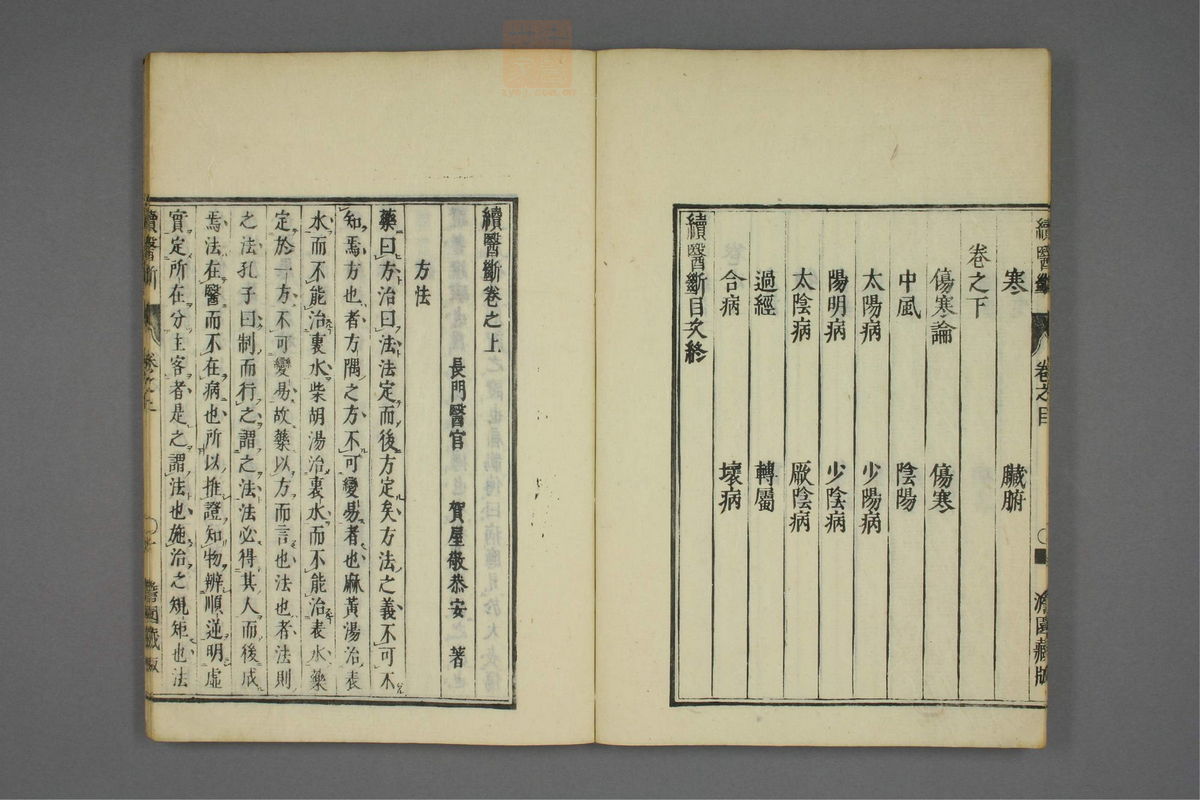 續醫斷 卷之目 澹園藏版
寒 臟腑
卷之下
傷寒論 傷寒
中風 陰陽
太陽病 少陽病
陽明病 少陰病
太陰病 厥陰病
過經 轉屬
合病 壞病
續醫斷目次終
續醫斷卷之上
長門醫官 賀屋敬恭安 著
方法
藥曰方治曰法法定而後方定矣方法之義不可不
知焉方也者方隅之方不可變易者也麻黃湯治表
水而不能治裏水柴胡湯治裏水而不能治表水藥
定於一方不可變易故藥以方而言也法也者法則
之法孔子曰制而行之謂之法法必得其人而後成
焉法在醫而不在病也所以推證知物辨順逆明虛
實定所在分主客者是之謂法也施治之規矩也法
續醫斷 卷之上 澹園藏版